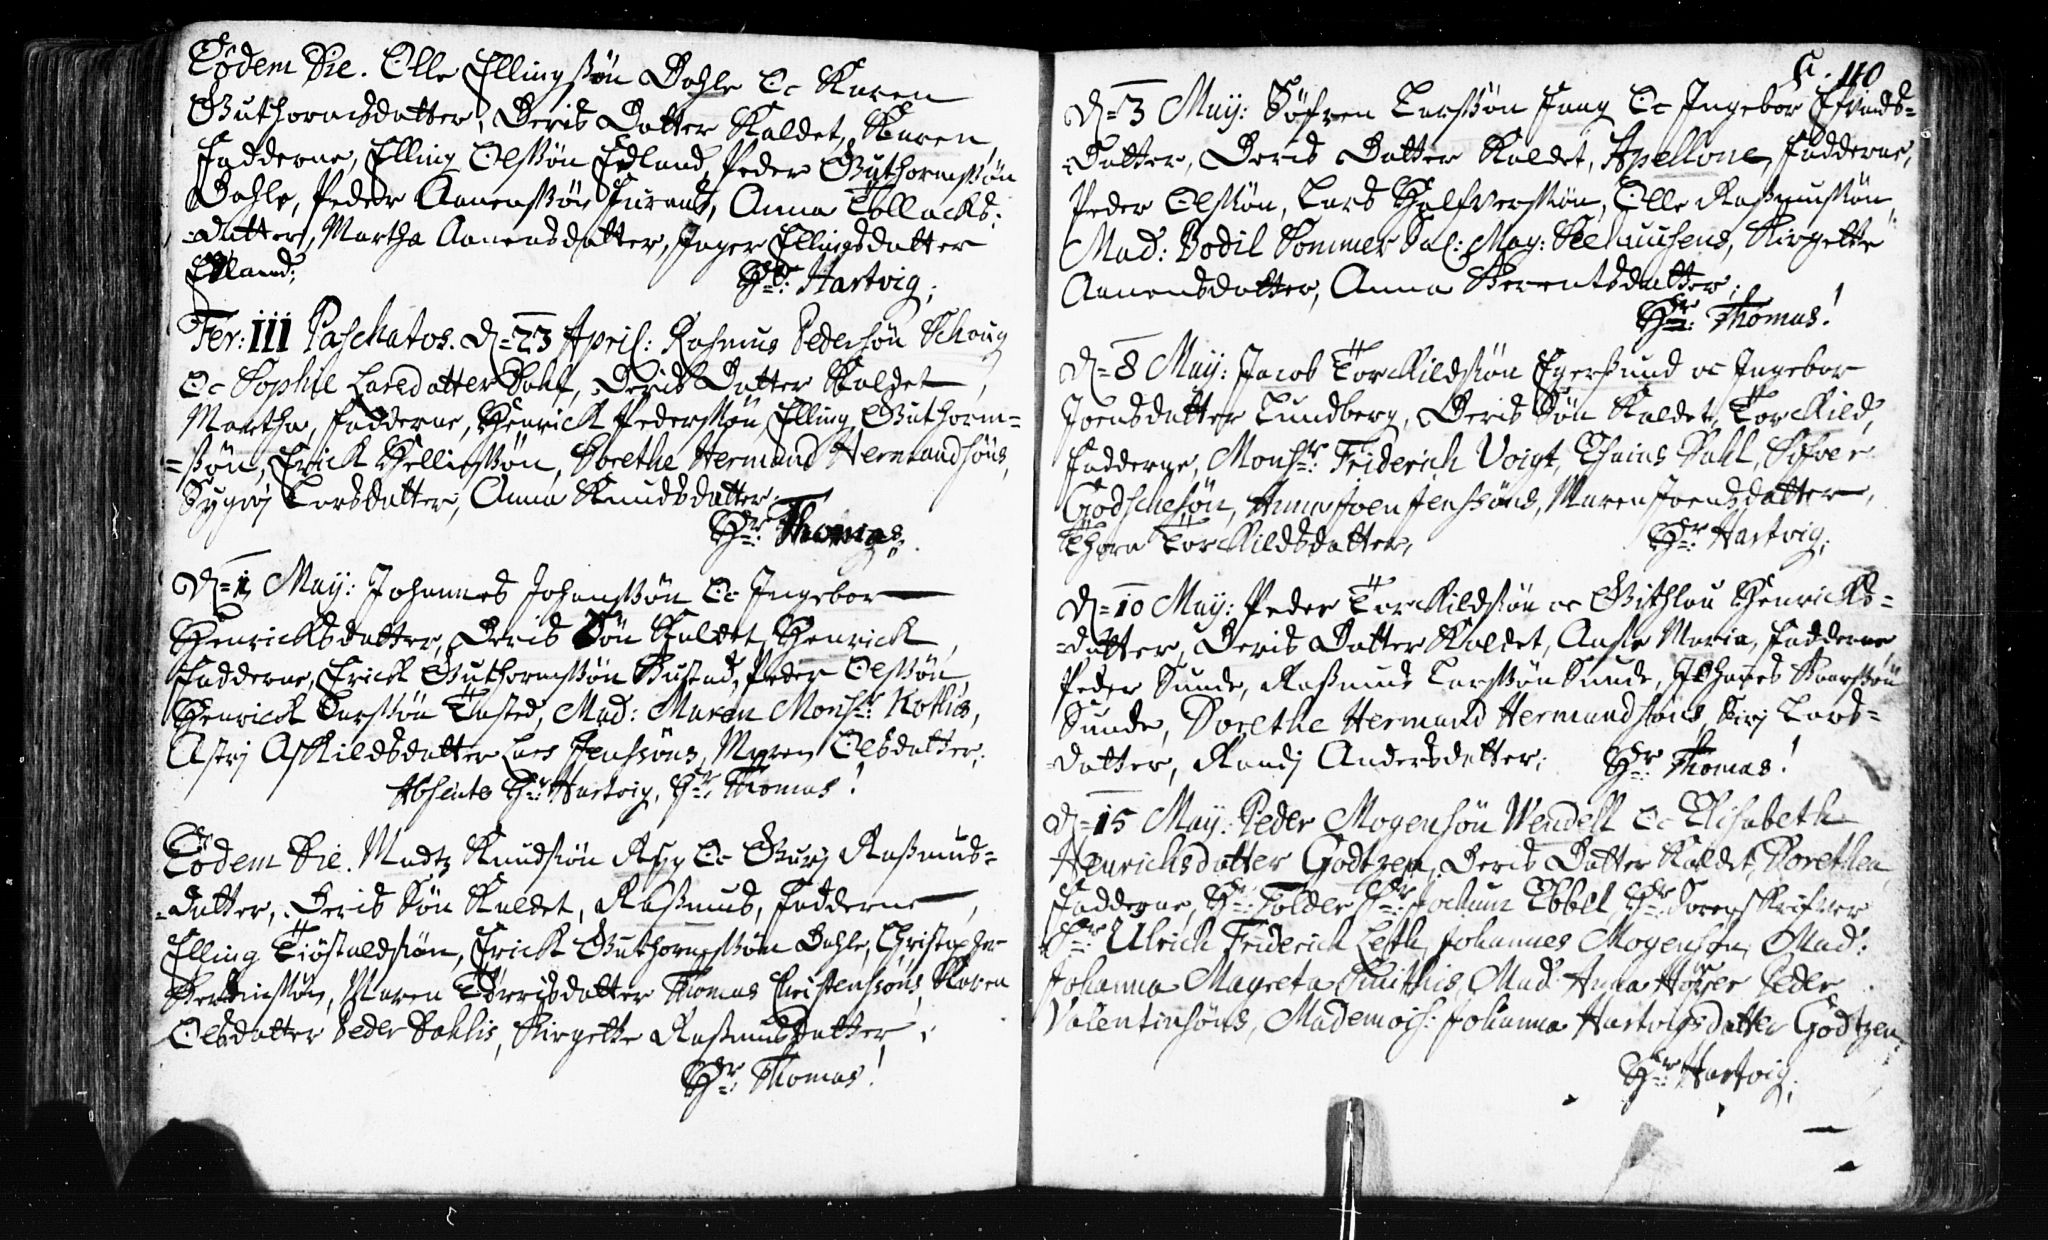 Eodem Die. Olle Ellingssøn Dahle Oc Karen
Guthormsdatter, Deris Datter Kaldet, Karen,
Fadderne, Elling Olssøn Edland, Peder Guthormssøn
Dahle, Peder Aanenssøn Furaas, Anna Tollacks-
-datter, Martha Aanensdatter, Inger Ellingsdatter
Edland; Hr: Hartvig;
Fer: III Paschatos. D= 23 April: Rasmus Pedersøn Schoug
Oc Sophie Laresdatter Dahl, Deris Datter Kaldet,
Martha, Fadderne, Henrick Pederssøn, Elling Guthorm=
=ssøn, Erick Helliessøn, Dorethe Hermand Hermandsøns,
Sygvj Larsdatter, Anna Knudsdatter.
Hr: Thomas.
D= 1 May: Johannes Johanssøn Oc Ingebor
Henricksdatter, Deris Søn Kaldet, Henrick,
Fadderne, Erick Guthormssøn Bustad, Peder Olssøn,
Henrick Larssøn Tasted, Mad: Maren Monsr: Kothes,
Astrj Askildsdatter Lars Jenssøns, Maren Olsdatter;
Absente Hr: Hartvig, Hr: Thomas!
Eodem Die. Madtz Knudsøn Oc Gurj Rasmus=
-datter, Deris Søn Kaldet, Rasmus, Fadderne,
Elling Tiøstaldsøn, Erick Guthormssøn Dahle, Christopher
Maren Tørrisdatter Thomas Christenssøns, Karen
Olsdatter Peder Dahls, Birgette Rasmusdatter;
Hr: Thomas!
110
D= 3 May: Søfren Larssøn Faag Oc Ingebor Efvinds=
-Datter, Deris Datter Kaldet, Apellone, Fadderne,
Peder Olssøn, Lars Halfverssøn, Olle Rasmussøn,
Mad: Bodil Sommer Sal: May: Seehuusens, Birgette
Aanensdatter, Anna Berentsdatter;
Hr: Thomas!
D= 8 May: Jacob Torkildsøn Egersund oc Ingebor
Joensdatter Lundberg, Deris Søn Kaldet, Torkild,
Fadderne, Monsr: Friderich Voigt, Dahl, Sifver
Godschesøn, Anna Joen Jenssøns, Maren Joensdatter,
Thora Torkildsdatter, Hr: Hartvig;
D= 10 May: Peder Torkildsøn oc Githlou Henricks=
=datter, Deris Datter Kaldet, Anne Maria, Fadderne
Peder Sunde, Rasmus Larssøn Sunde, Johannes
Sunde, Dorethe Hermand Hermandsøns, Sirj Lars=
-datter, Randj Andersdatter; Hr: Thomas!
D= 15 May: Peder Mogensøn Wendell Oc Elisabeth
Henrichsdatter Godtzen, Deris Datter Kaldet, Dorethea
Fadderne, Hr: Tolder Hr: Jochum Ebbel, Hr: Sorenskrifver
Hr: Ulrich Friderich Leth, Johannes Mogensøn, Mad:
Johanna Magreta Smithis, Mad: Anna Høyer Peder
Valentinsøns, Mademois: Johanna Hartvigsdatter Godtzen.
Hr: Hartvig;